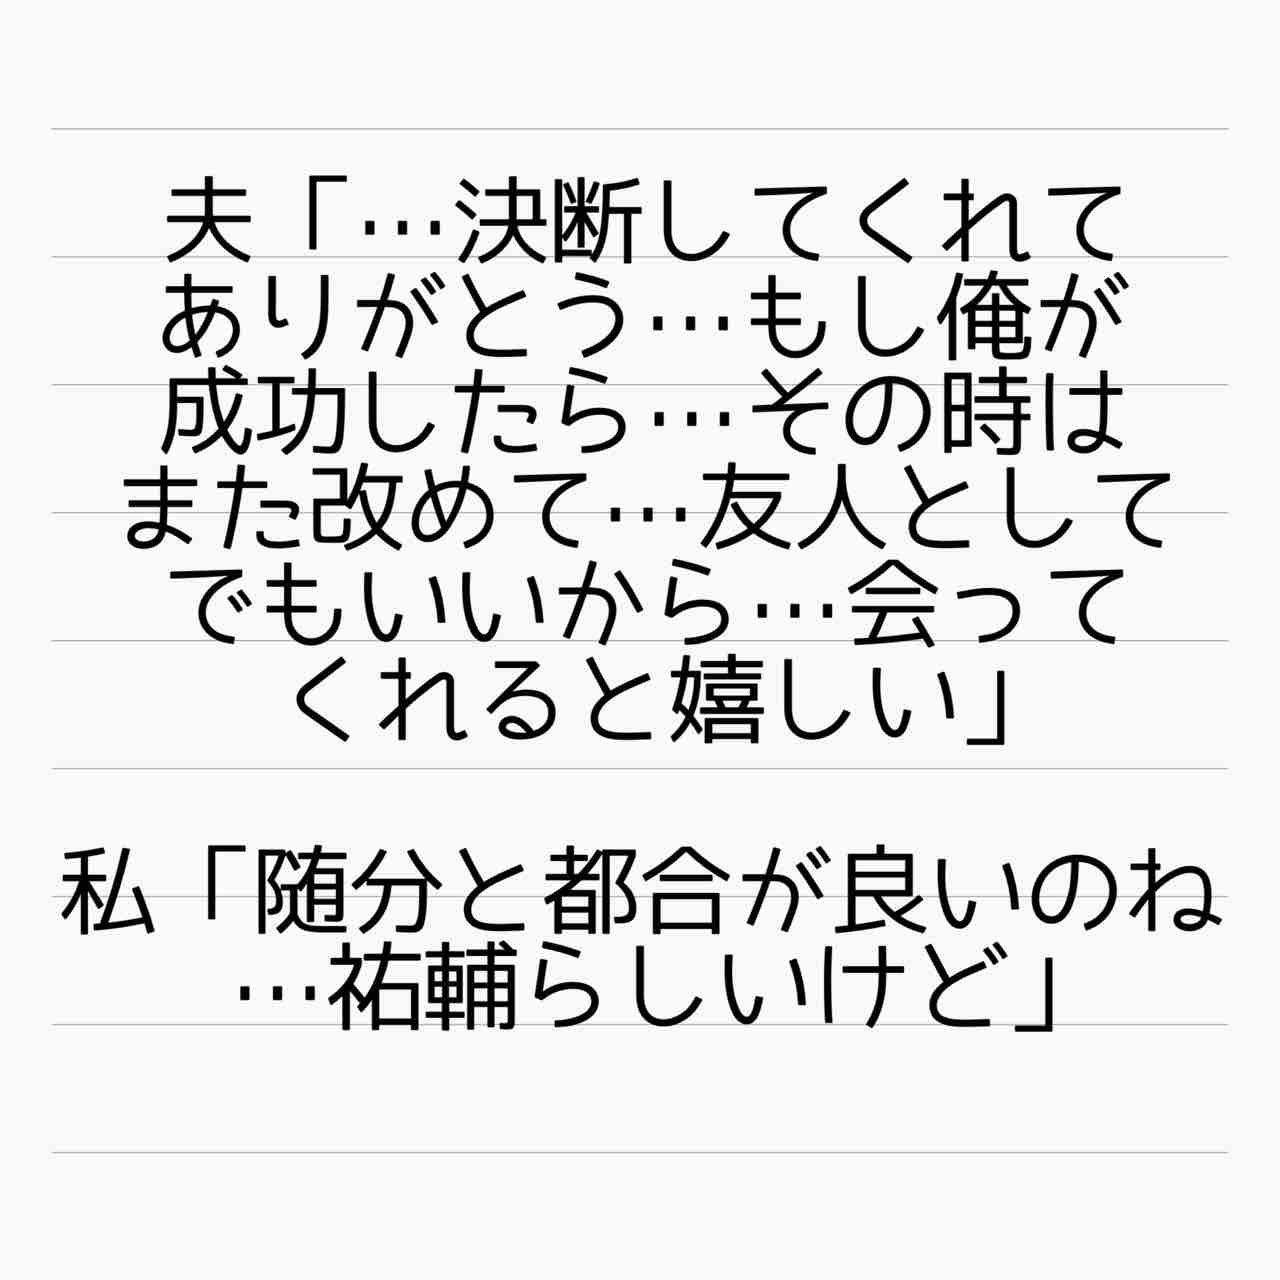 夫「…決断してくれて
ありがとう…もし俺が
成功したら…その時は
また改めて…友人として
でもいいから…会って
くれると嬉しい」
私「随分と都合が良いのね
…祐輔らしいけど」